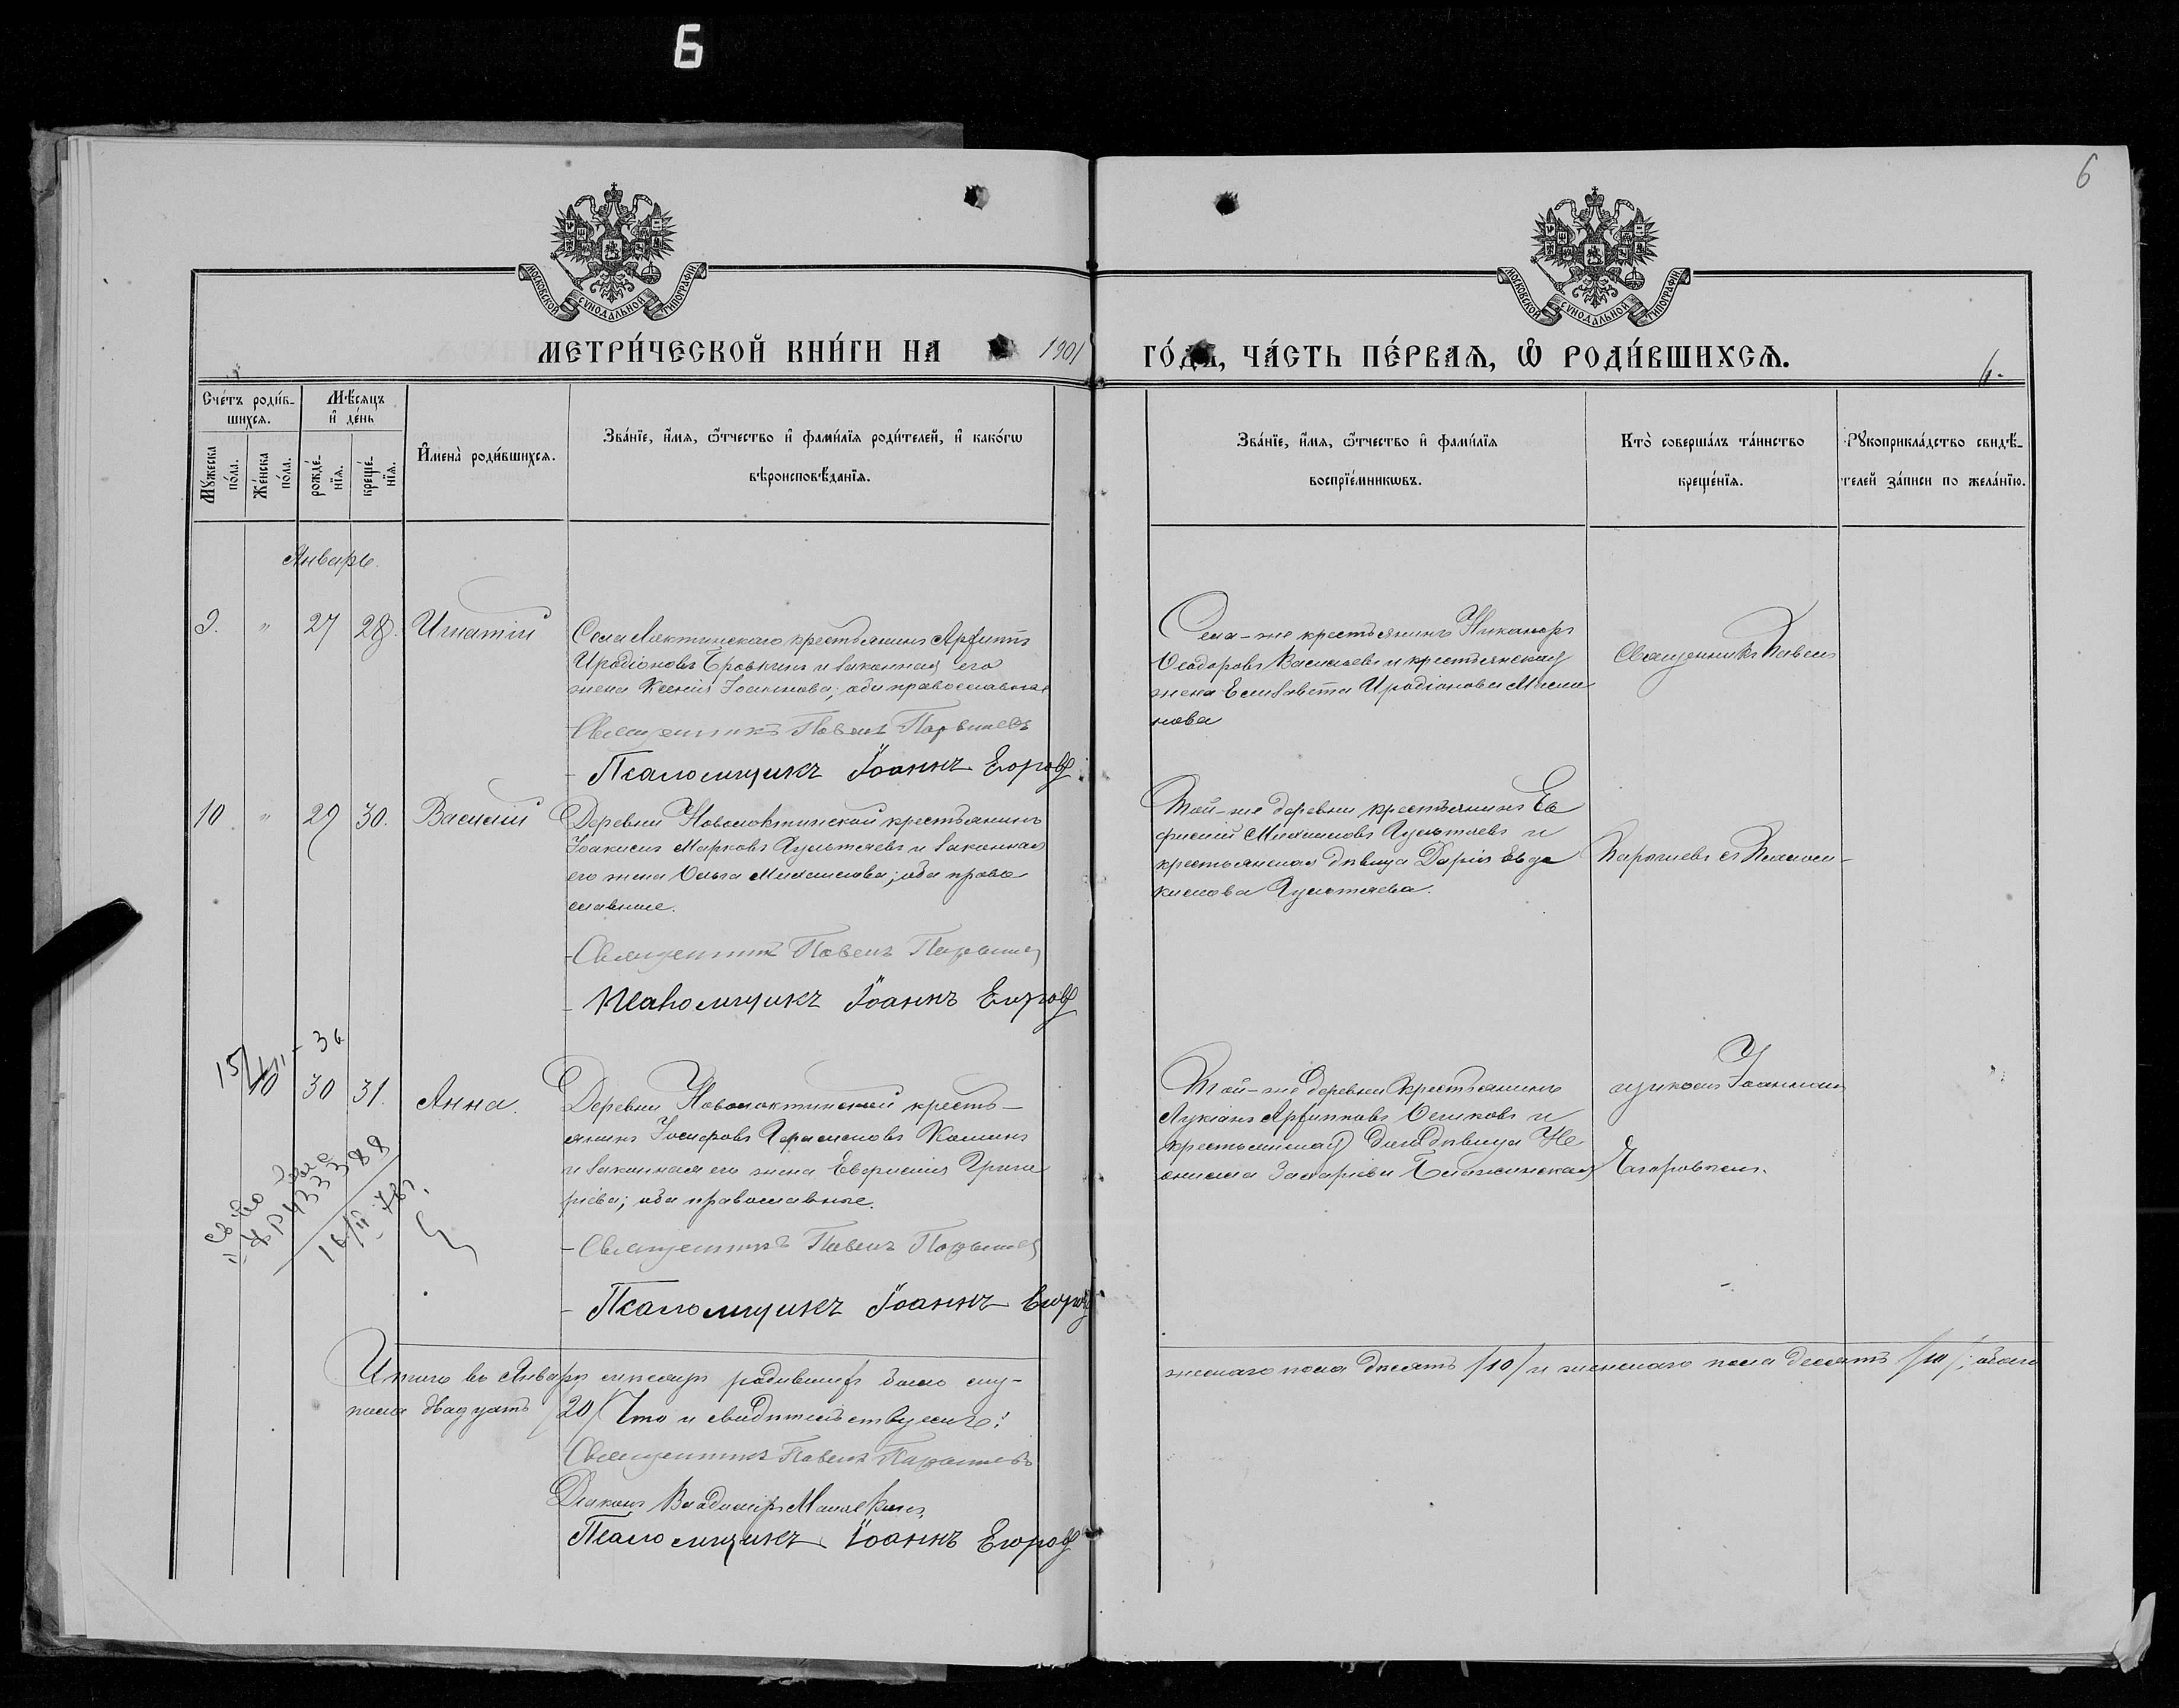 6
6
МОСКОВСКОЙ СѴНОДАЛЬНОЙ ТИПОГРАФІИ
МОСКОВСКОЙ СѴНОДАЛЬНОЙ ТИПОГРАФІИ
МЕТРИ́ЧЕСКОЙ КНИ́ГИ НА 1901 ГО́ДЪ, ЧА́СТЬ ПЕ́РВАѦ, Ѽ РОДИ́ВШИХСѦ.
6.
Сче́тъ роди́в-
шихсѧ.
Мѣ́сяцъ
и҆ де́нь
Мꙋ́жеска
по́ла.
Же́нска
по́ла.
рожде́-
нїѧ.
креще́-
нїѧ.
И҆мена̀ роди́вшихсѧ.
Зва́нїе, и҆́мѧ, ѻ҆́тчество и҆ фами́лїѧ роди́телей, и҆ како́гѡ
вѣроисповѣ́данїѧ.
Зва́нїе, и҆́мѧ, ѻ҆́тчество и҆ фами́лїѧ
воспрїе́мникѡвъ.
Кто̀ соверша́лъ та́инство
креще́нїѧ.
Рꙋкоприкла́дство свидѣ́-
телей за́писи по жела́нїю.
Январь.
9. " 27 28. Игнатій
Села Локтинскаго крестьянинъ Арѳиппъ
Иродіоновъ Бровкинъ и законная его
жена Ксенія Іоакимова; оба православные
Священникъ Павелъ Парышевъ
Псаломщикъ Іоаннъ Егоровъ
Села-же крестьянинъ Никаноръ
Ѳеодоровъ Васильевъ и крестьянская
жена Елизавета Иродіонова
нова
Священникъ Павелъ
10 " 29 30. Василій
Деревни Новолоктинской крестьянинъ
Іоакимъ Марковъ Гультяевъ и законная
его жена Ольга Михайлова; оба право
славные.
Священникъ Павелъ Парышевъ
Псаломщикъ Іоаннъ Егоровъ
Той-же деревни крестьянинъ Ев
фимій Михаиловъ Гультяевъ и
крестьянская дѣвица Дарія Евдо
кимова Гультяева.
Парышевъ съ Псалом-
15/ - 36
10 30 31. Анна.
Деревни Новолоктинской кресть-
янинъ Іосифовъ Герасимовъ Кошинъ
и законная его жена Евфимія Григо
рьева; оба православные.
Священникъ Павелъ Парышевъ
Псаломщикъ Іоаннъ Егоровъ
Той-же деревни крестьянинъ
Лукіанъ Арѳипповъ и
крестьянская дѣвица Не
онила Захаріева
щикомъ Іоанномъ
Егоровымъ.
16/II-78г.
Итого въ Январѣ мѣсяцѣ родившихся было му-
жескаго пола десять /10/ и женскаго пола десять /10/; обоего
пола двадцать /20/ Что и свидѣтельствуемъ:
Священникъ Павелъ Парышевъ
Діаконъ Владиміръ
Псаломщикъ Іоаннъ Егоровъ